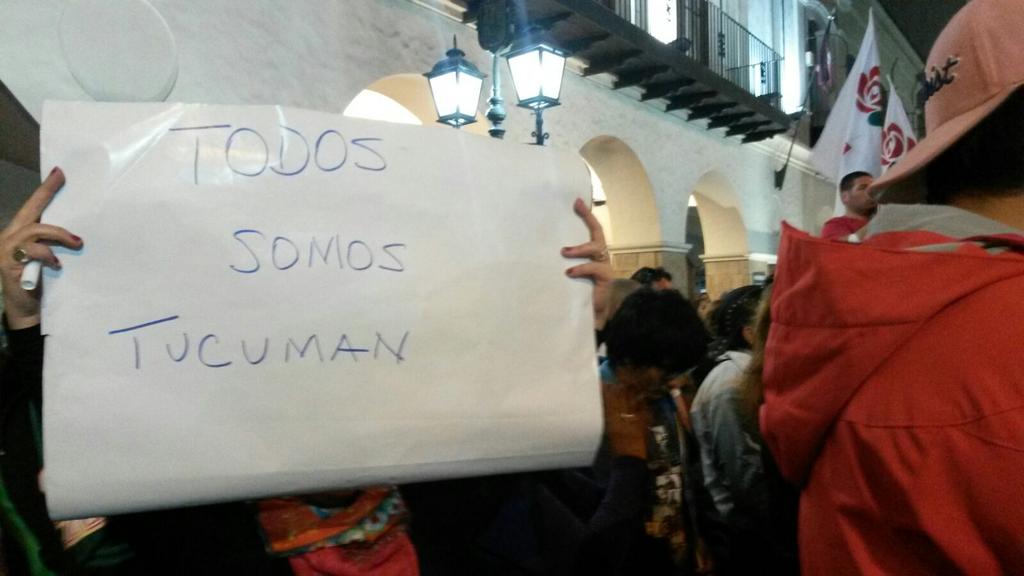 TODOS
SOMOS
TUCUMAN